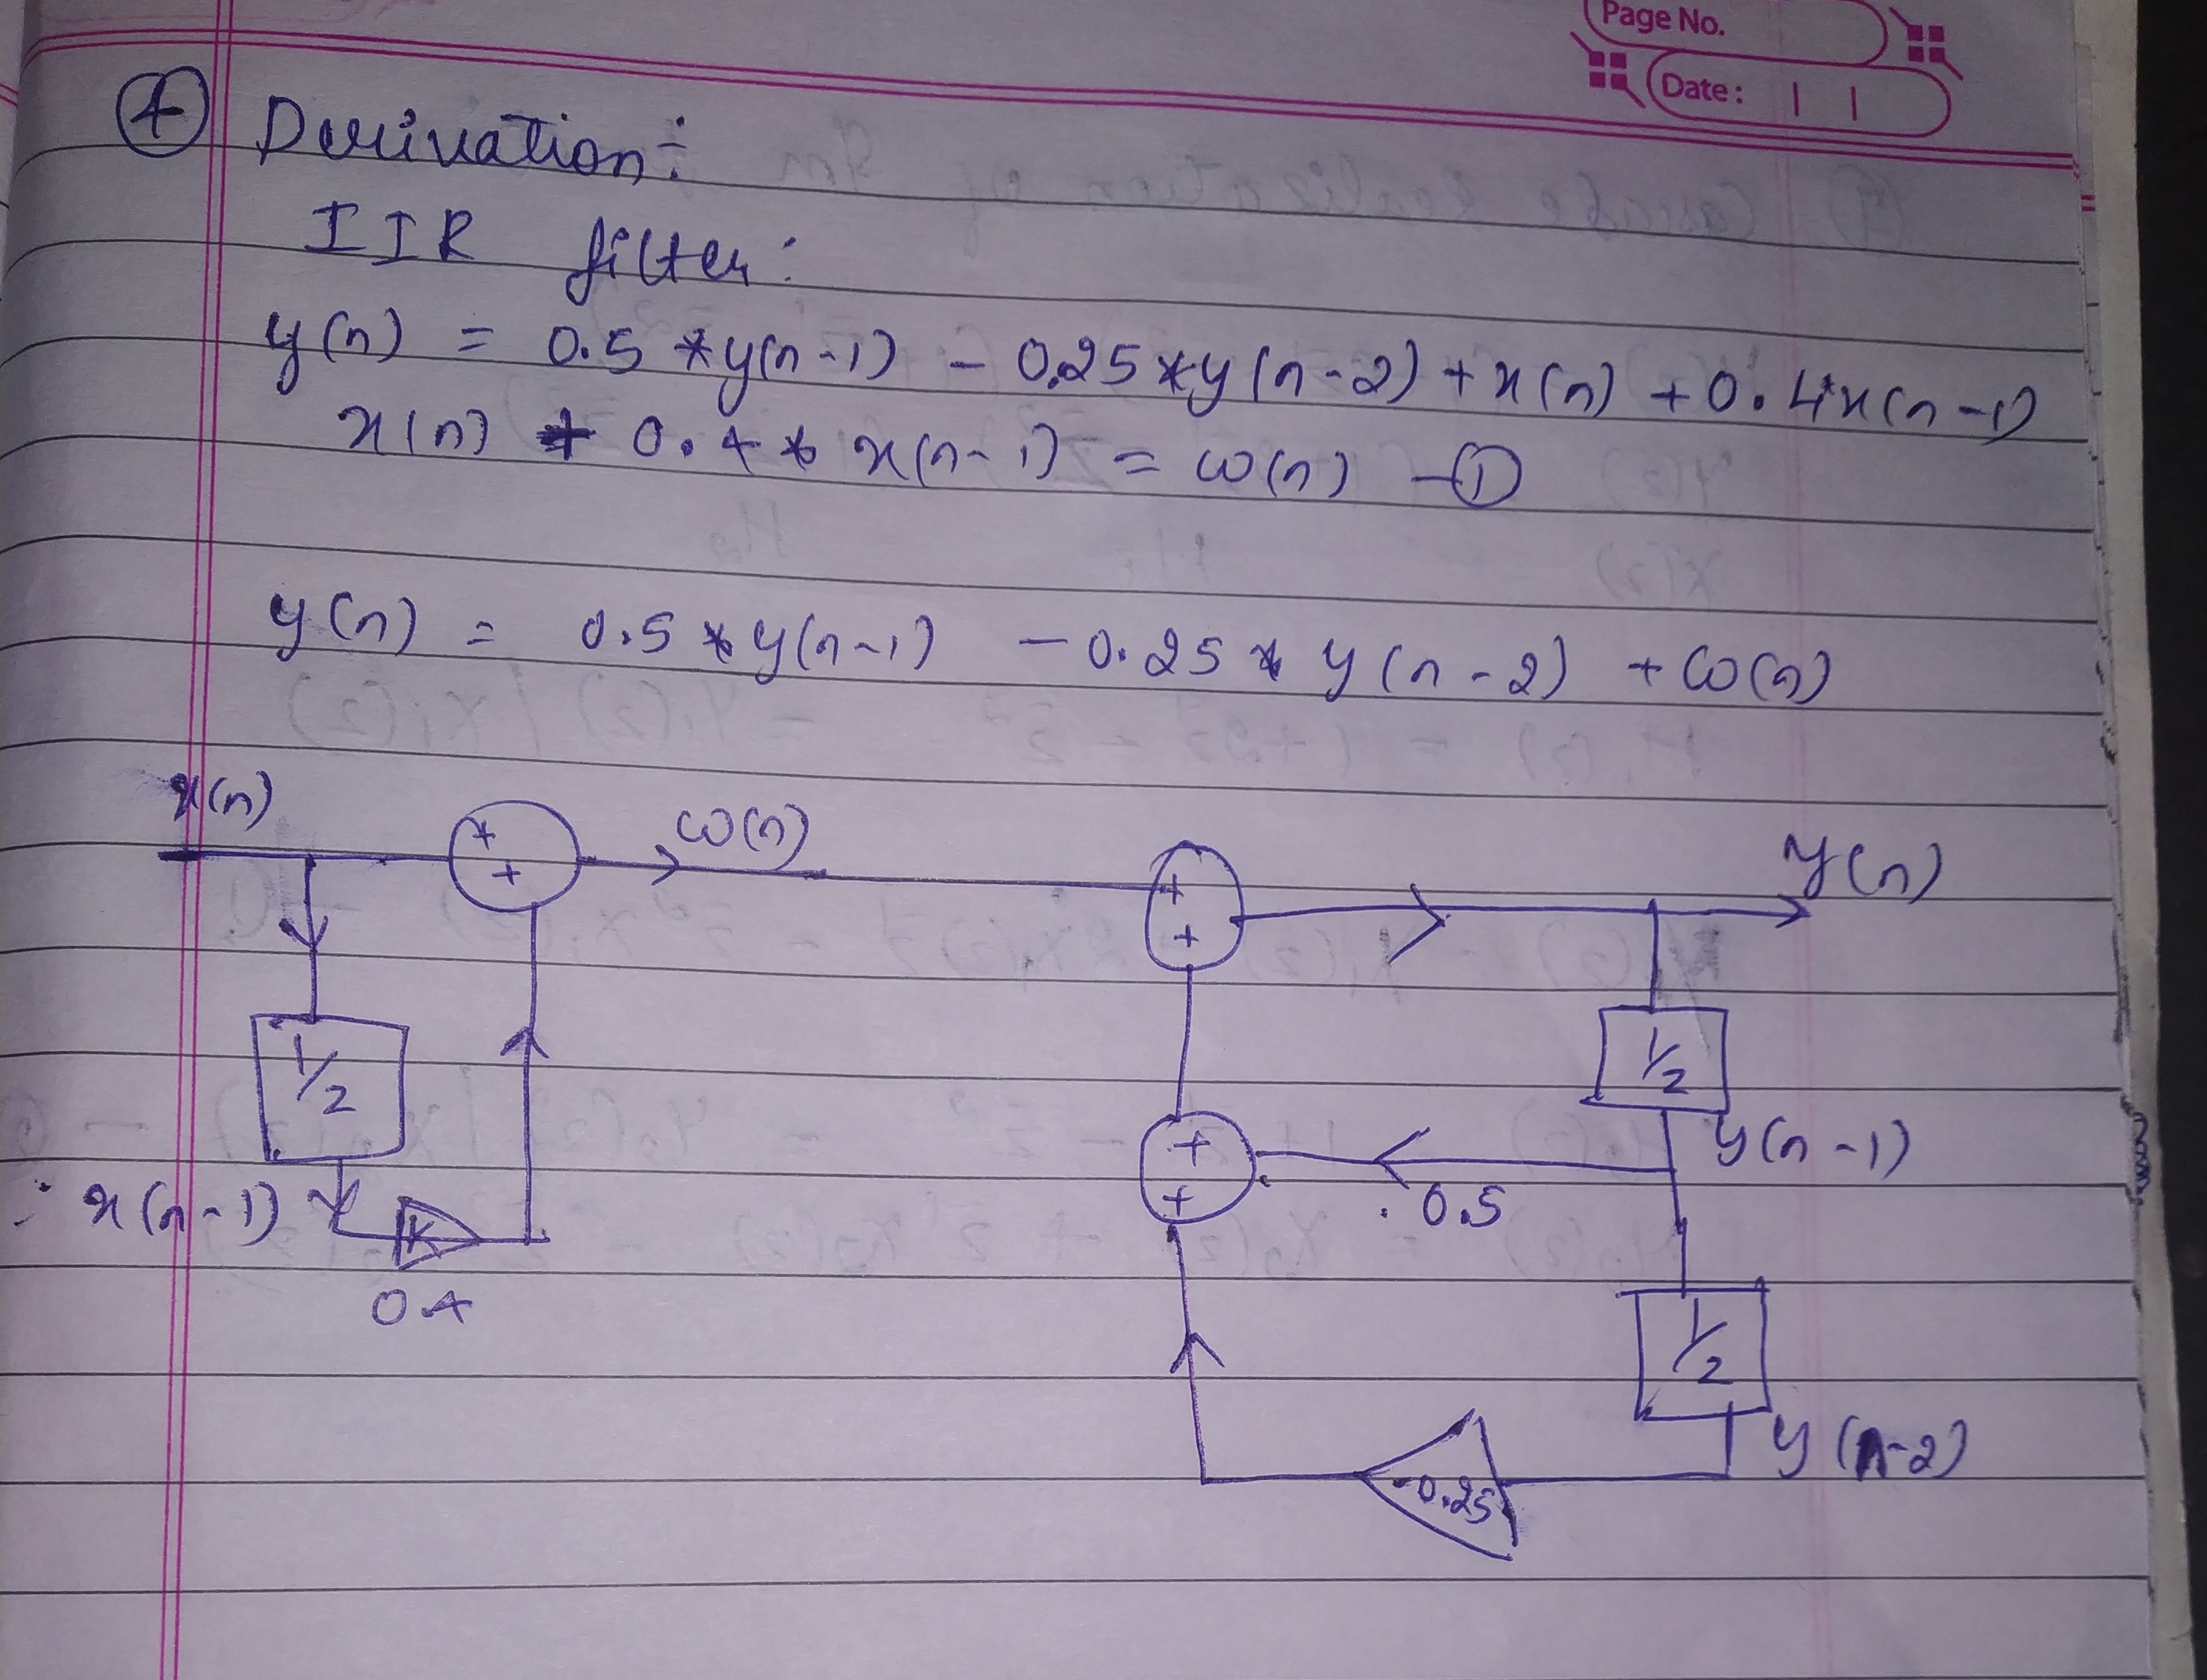 Page No.
Date:
④ Derivation:
IIR filter:
y(n) = 0.5 *y(n-1) - 0.25*y(n-2) + x(n) + 0.4x(n-1)
x(n) + 0.4 * x(n-1) = ω(n) -①
y(n) = 0.5 * y(n-1) -0.25 * y(n-2) + ω(n)
x(n)
ω(n)
y(n)
+
+
+
+
1/2
1/2
y(n-1)
+
+
0.5
x(n-1)
K
0.4
1/2
y(n-2)
-0.25